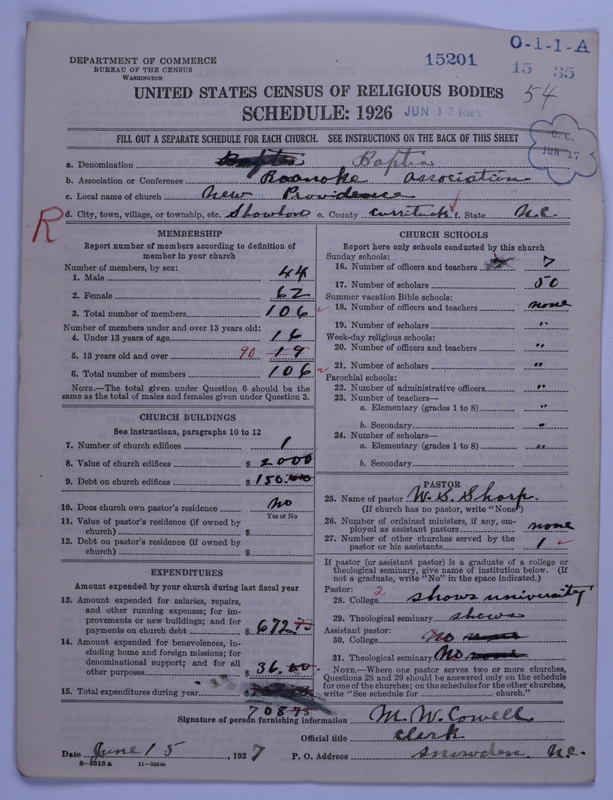 DEPARTMENT OF COMMERCE
BUREAU OF THE CENSUS
WASHINGTON
15201
O-1-1-A
15 35
54
UNITED STATES CENSUS OF RELIGIOUS BODIES
SCHEDULE: 1926
JUN 17 Rec'd
FILL OUT A SEPARATE SCHEDULE FOR EACH CHURCH. SEE INSTRUCTIONS ON THE BACK OF THIS SHEET
JUN 17
a. Denomination Baptis
b. Association or Conference Roanoke association
c. Local name of church New Providence
R
d. City, town, village, or township, etc. e. County Currituck f. State N.C.
MEMBERSHIP
Report number of members according to definition of
member in your church
Number of members, by sex:
1. Male 44
2. Female 62
3. Total number of members 106
Number of members under and over 13 years old:
4. Under 13 years of age 16
5. 13 years old and over 90 19
6. Total number of members 106
NOTE.—The total given under Question 6 should be the
same as the total of males and females given under Question 3.
CHURCH BUILDINGS
See instructions, paragraphs 10 to 12
7. Number of church edifices 1
8. Value of church edifices $ 2000
9. Debt on church edifices $ 150.00
10. Does church own pastor's residence no
Yes or No
11. Value of pastor's residence (if owned by
church) $
12. Debt on pastor's residence (if owned by
church) $
EXPENDITURES
Amount expended by your church during last fiscal year
13. Amount expended for salaries, repairs,
and other running expenses; for im-
provements or new buildings; and for
payments on church debt $ 672.75
14. Amount expended for benevolences, in-
cluding home and foreign missions; for
denominational support; and for all
other purposes $ 36.00
15. Total expenditures during year $
708 75
CHURCH SCHOOLS
Report here only schools conducted by this church
Sunday schools:
16. Number of officers and teachers 7
17. Number of scholars 50
Summer vacation Bible schools:
18. Number of officers and teachers none
19. Number of scholars "
Week-day religious schools:
20. Number of officers and teachers "
21. Number of scholars "
Parochial schools:
22. Number of administrative officers "
23. Number of teachers—
a. Elementary (grades 1 to 8) "
b. Secondary "
24. Number of scholars—
a. Elementary (grades 1 to 8) "
b. Secondary
PASTOR
25. Name of pastor W. S. Sharp.
(If church has no pastor, write "None")
26. Number of ordained ministers, if any, em-
ployed as assistant pastors none
27. Number of other churches served by the
pastor or his assistants 1
If pastor (or assistant pastor) is a graduate of a college or
theological seminary, give name of institution below. (If
not a graduate, write "No" in the space indicated.)
Pastor: 2
28. College shows university
29. Theological seminary shows
Assistant pastor:
30. College No none
31. Theological seminary No none
NOTE.—Where one pastor serves two or more churches,
Questions 28 and 29 should be answered only on the schedule
for one of the churches; on the schedules for the other churches,
write "See schedule for church."
Signature of person furnishing information M. W. Cowell
Official title clerk
Date June 15, 1927 P. O. Address Snowden N.C.
8-5518a 11-9054a